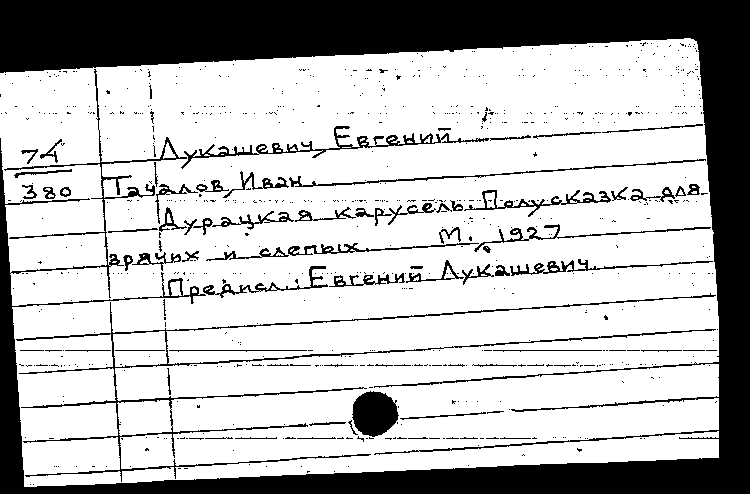 74 Лукашевич, Евгений.
380 Тачалов, Иван.
Дурацкая карусель. Полусказка для
зрячих и слепых. М., 1927
Предисл.: Евгений Лукашевич.